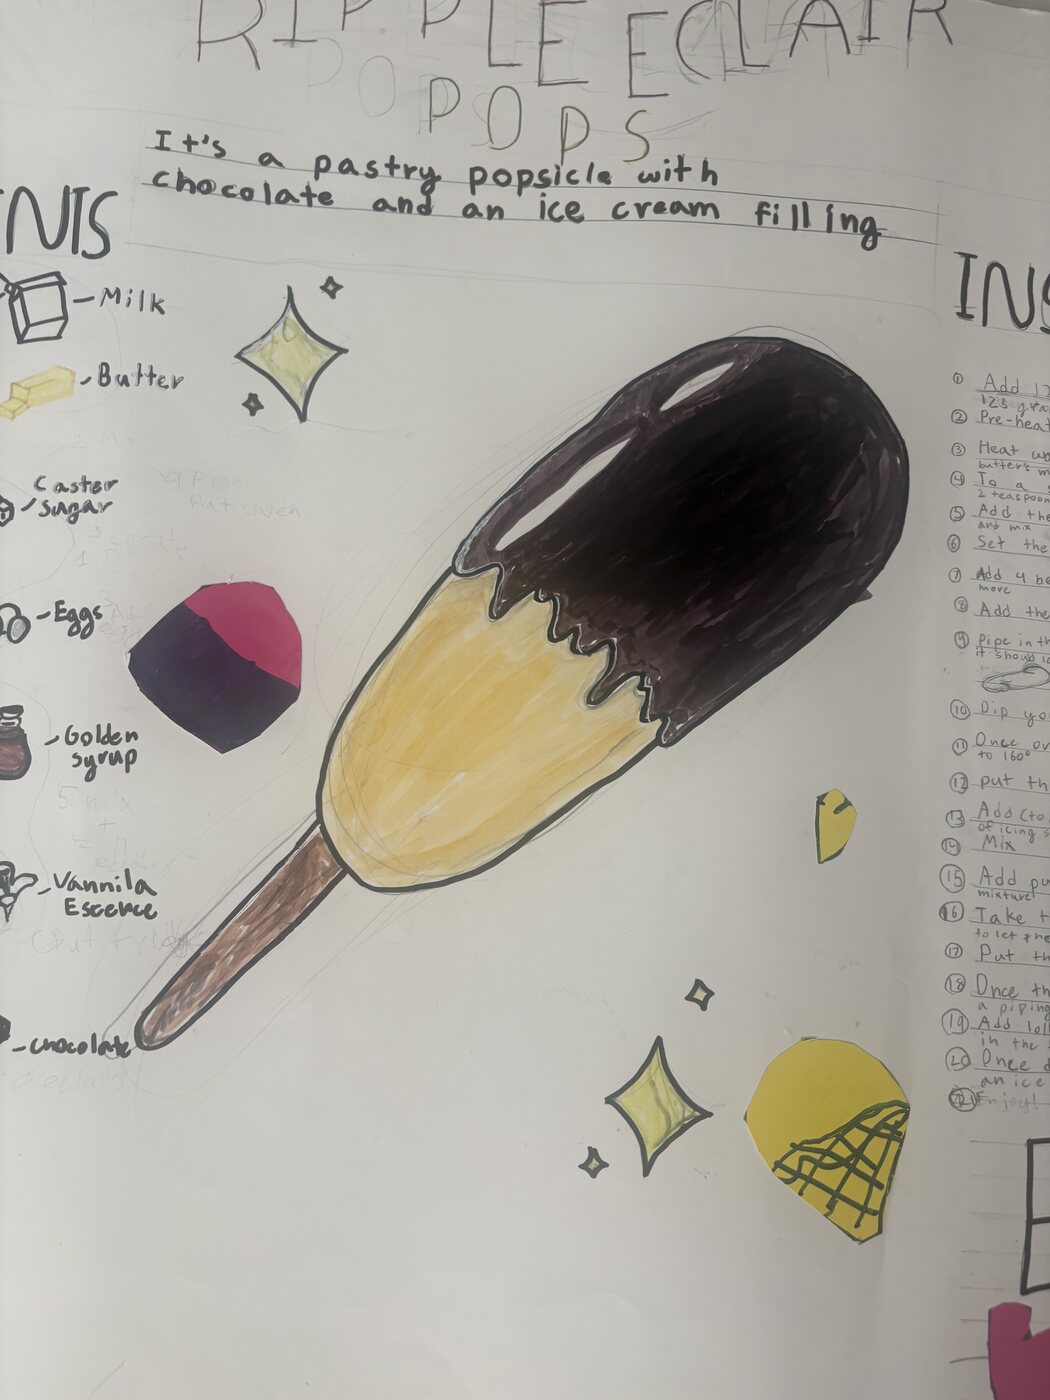 RIPPLE ECLAIR
POPS
It's a pastry popsicle with
chocolate and an ice cream filling
NTS
Milk
Butter
Caster
sugar
Eggs
Golden
syrup
Vannila
Escence
chocolate
INS
1 Add 1
125 gra
2 Pre-heat
3 Heat wa
butter's m
4 To a
2 teaspoon
5 Add the
and mix
6 Set the
7 Add 4 be
more
8 Add the
9 Pipe in th
it should lo
10 Dip yo
11 Once ov
to 160°
12 put th
13 Add (to
of icing s
14 Mix
15 Add pu
mixture
16 Take t
to let the
17 Put th
18 Once th
a piping
19 Add loll
in the
20 Once d
an ice
21 Enjoy!